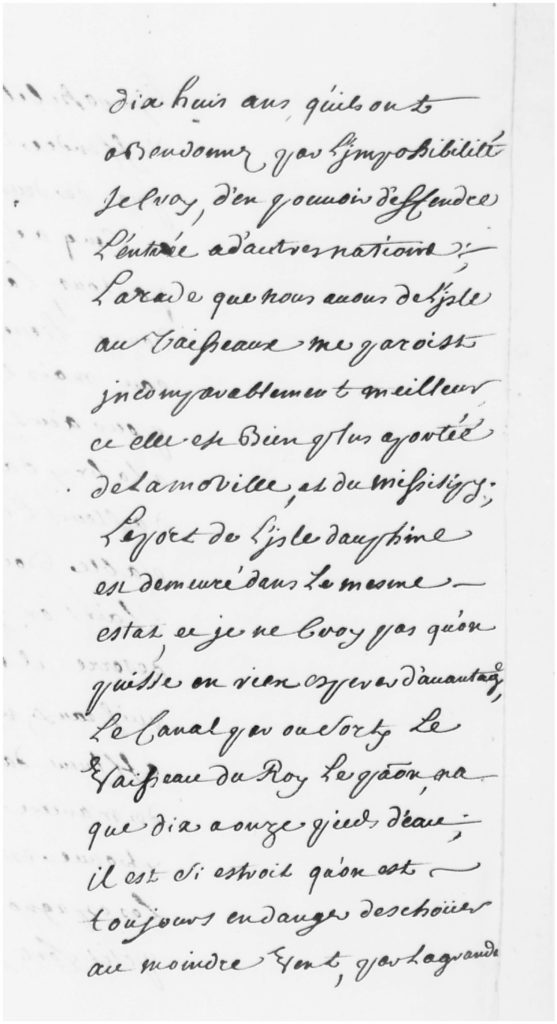 dix huit ans, qu'ils ont
abendonné par L'jmpossibilité
Je Croy, d'en pouvoir deffendre
L'entrée a d'autres nations;
La rade que nous avons de L'jsle
au Vaisseaux me paroist
jncomparablement meilleur
et elle est Bien plus aportée
de La moville, et du missisipy;
Le port de L'jsle dauphine
est demeuré dans Le mesme
estat, et je ne Croy pas qu'on
puisse en rien esperer d'avantage,
Le Canal par ou sorty Le
Vaisseau du Roy Le paon, na
que dix a onze pieds d'eau;
il est si estroit qu'on est
toujours en danger deschoüer
au moindre Vent, par La grande